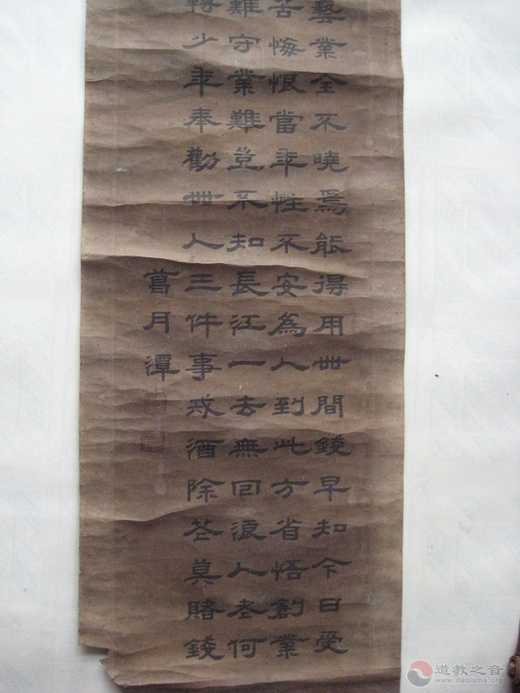 藝業全不曉焉能得用世間錢早知今日受
苦悔恨當年性不安為人到此方省悟創業
難守業難豈不知長江一去無回浪人老何
轉少年奉勸世人三件事戒酒除花莫賭錢
萬月潭
道教之音
www.daoisms.org